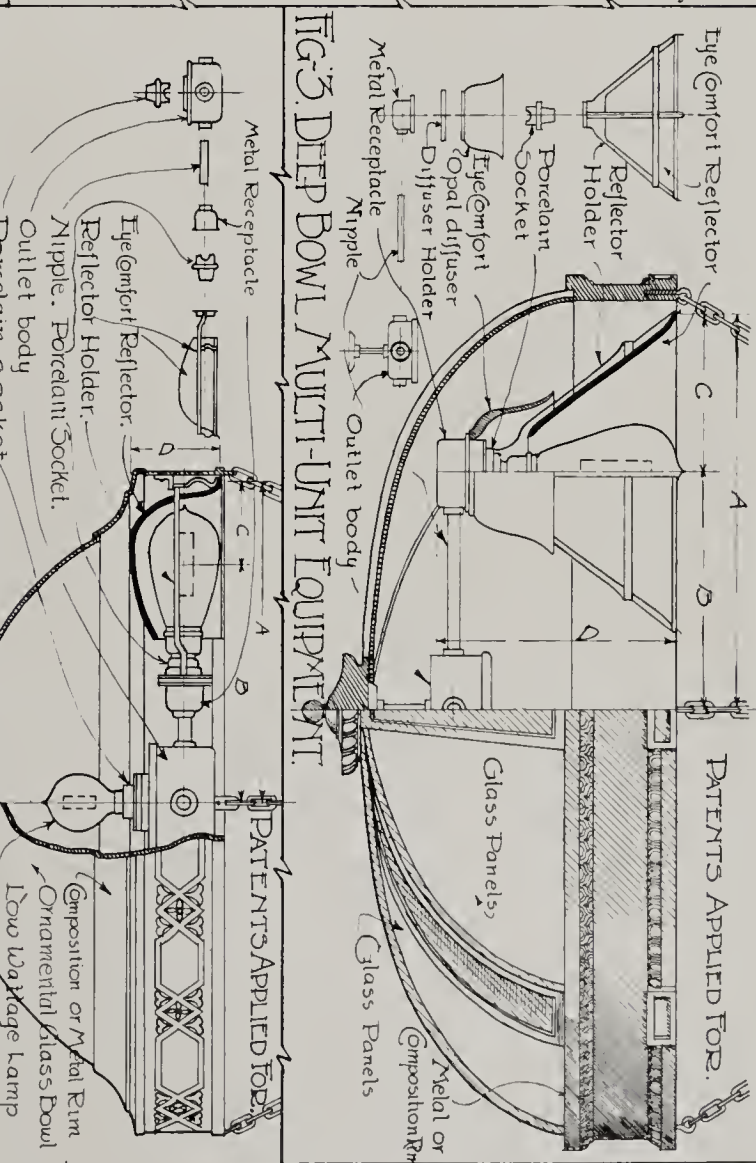 Eye Comfort Reflector
Reflector
Holder
Porcelain
Socket
Eye Comfort
Opal diffuser
Diffuser Holder
Metal Receptacle
Nipple
Outlet body
A
C
B
D
PATENTS APPLIED FOR.
Glass Panels,
Glass Panels
Metal or
Composition Rim
FIG-3. DEEP BOWL MULTI-UNIT EQUIPMENT.
Metal Receptacle
Eye Comfort Reflector.
Reflector Holder.
Nipple. Porcelain Socket.
Outlet body
Porcelain Socket
D
C
A
B
PATENTS APPLIED FOR
Composition or Metal Rim
Ornamental Glass Bowl
Low Wattage Lamp